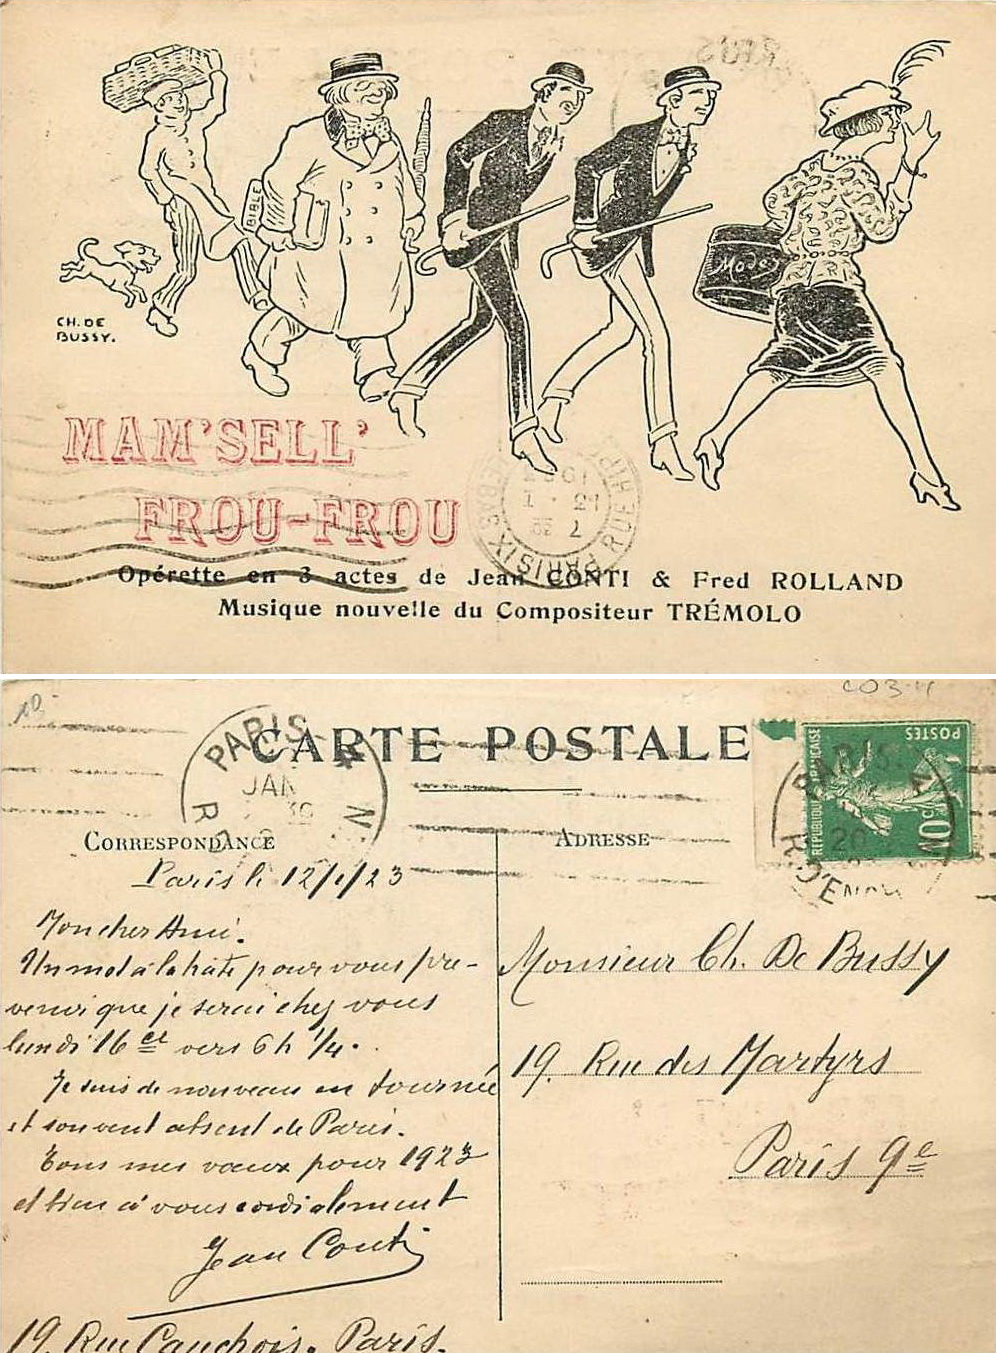 BIBLE
Modes
CH. DE
BUSSY.
MAM'SELL'
FROU-FROU
Opérette en 3 actes de Jean CONTI & Fred ROLLAND
Musique nouvelle du Compositeur TRÉMOLO
CARTE POSTALE
PARIS
JAN
REPUBLIQUE FRANÇAISE
POSTES
10c
CORRESPONDANCE
ADRESSE
Paris le 12/1/23
Mon cher Ami.
Un mot à la hâte pour vous pré-
venir que je serai chez vous
lundi 16er vers 6h 1/4.
Je suis de nouveau en tournée
et souvent absent de Paris.
Tous mes vœux pour 1923
et bien à vous cordialement
Jean Conti
19. Rue Cauchois. Paris.
Monsieur Ch. De Bussy
19. Rue des Martyrs
Paris 9e